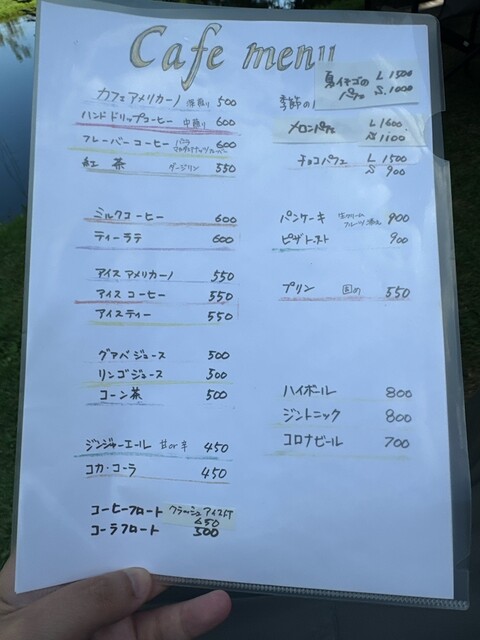 Cafe menu
カフェアメリカーノ 深煎り 500
ハンドドリップコーヒー 中煎り 600
フレーバーコーヒー バニラ マカダミアナッツフレーバー 600
紅茶 ダージリン 550
ミルクコーヒー 600
ティーラテ 600
アイスアメリカーノ 550
アイスコーヒー 550
アイスティー 550
グァバジュース 500
リンゴジュース 500
コーン茶 500
ジンジャーエール 甘or辛 450
コカ・コーラ 450
コーヒーフロート クラッシュアイス
650
コーラフロート 500
季節の
夏イチゴの パフェ L 1500
S 1000
メロンパフェ L 1600
S 1100
チョコパフェ L 1500
S 900
パンケーキ 生クリーム フルーツ 900
ピザトースト 900
プリン 固め 550
ハイボール 800
ジントニック 800
コロナビール 700